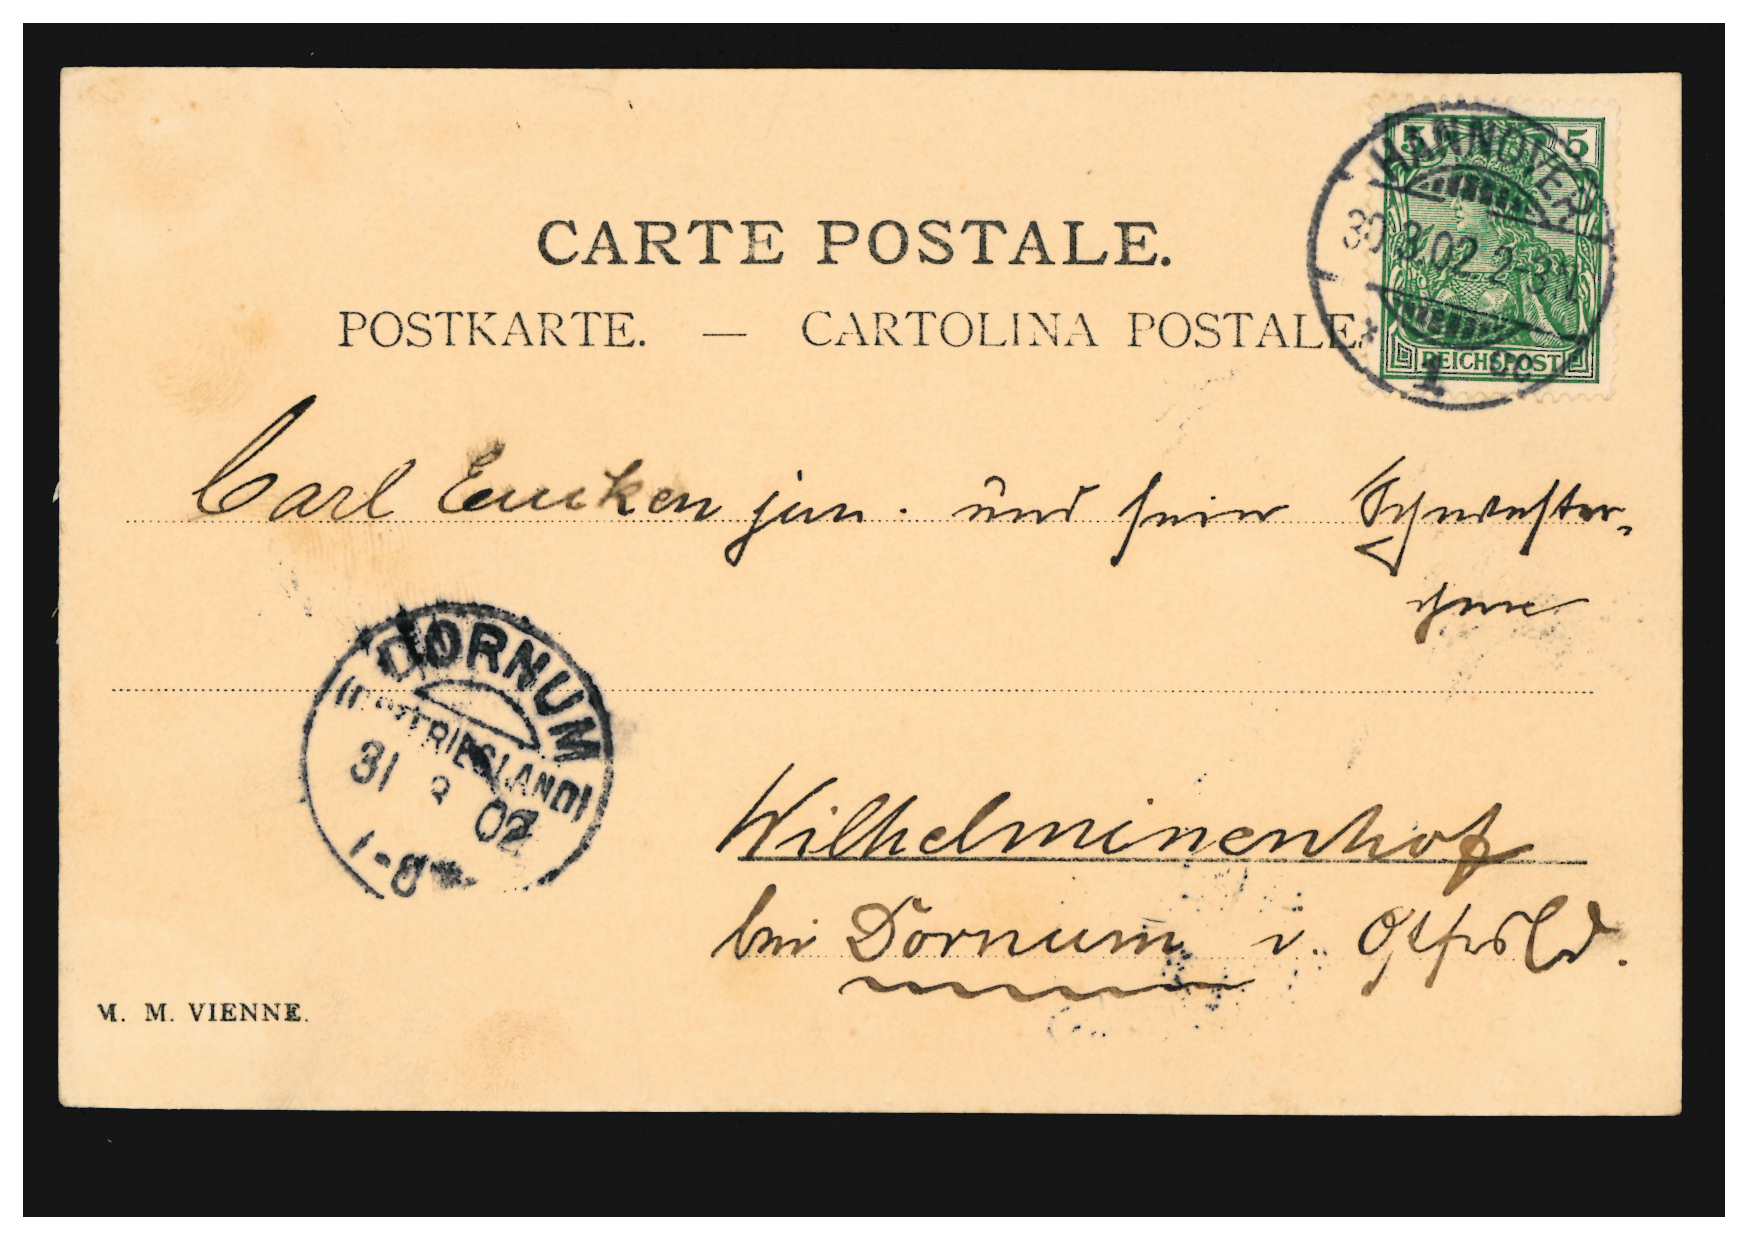 5 5
HANNOVER
30.3.02. 2-3 N
REICHSPOST
* 1 *
CARTE POSTALE.
POSTKARTE. — CARTOLINA POSTALE.
Carl Eucken jun. und sein Schwester-
chen
DORNUM
(OSTFRIESLAND)
31 3 02
7-8
Wilhelminenhof
bei Dornum i. Ostfrsld.
M. M. VIENNE.